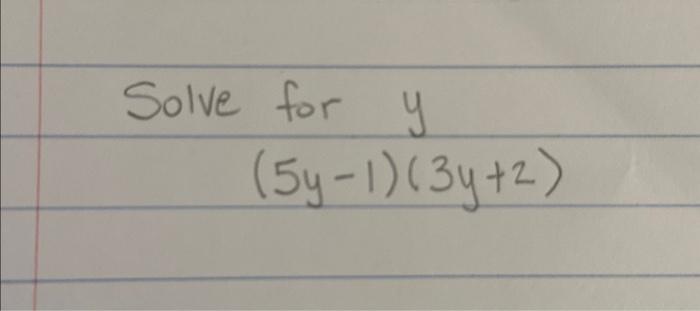 Solve for y
(5y-1)(3y+2)